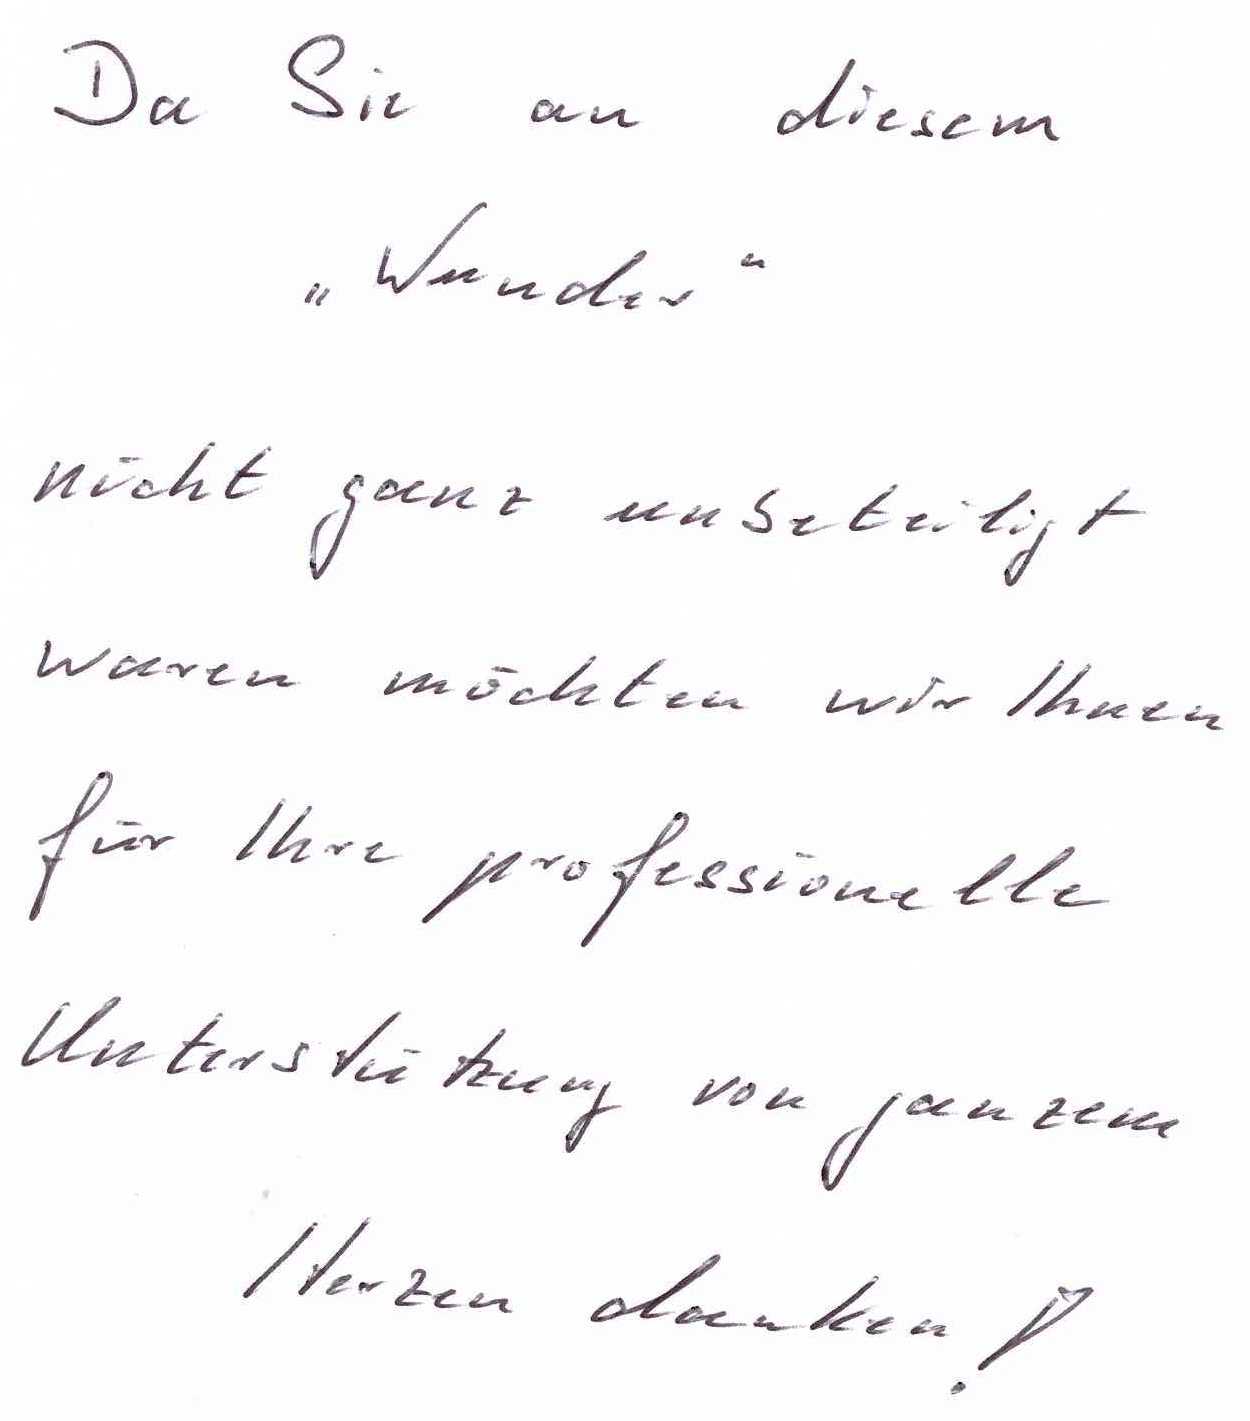 Da Sie an diesem
„Wunder“
nicht ganz unbeteiligt
waren möchten wir Ihnen
für Ihre professionelle
Unterstützung von ganzem
Herzen danken!